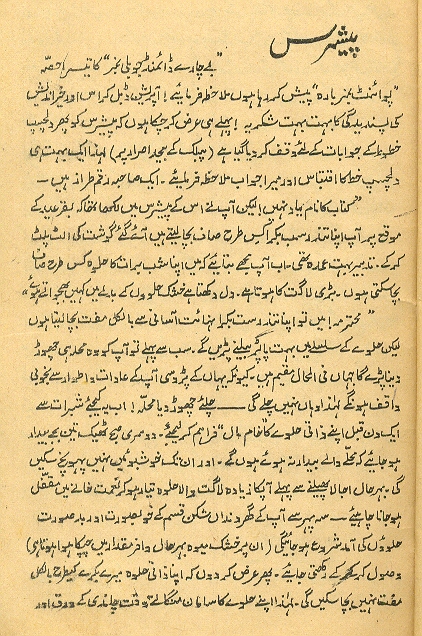 پیشرس
"بے چارے ڈائمنڈ جوبلی نمبر" کا تیسرا حصّہ
"پوائنٹ نمبر بارہ" پیش کر رہا ہوں ملاحظہ فرمایئے! آپریشن ڈبل کراس اور خیر اندیش
کی پسندیدگی کا بہت بہت شکریہ! پہلے ہی عرض کر چکا ہوں کہ پیشرس کو پھر دلچسپ
خطوط کے جوابات کے لئے وقف کر دیا گیا ہے (پبلک کے بیحد اصرار پر) لہٰذا ایک بہت ہی
دلچسپ خط کا اقتباس اور میرا جواب ملاحظہ فرمایئے۔ ایک صاحبہ رقم طراز ہیں ــ
"کتاب کا نام یاد نہیں! لیکن آپ نے اس کے پیشرس میں لکھا تھا کہ بقر عید کے
موقع پر آپ اپنا تندرست بکرا کس طرح صاف بچا لیتے ہیں آئے گئے گوشت کی الٹ پلٹ
کر کے۔ تدبیر بہت عمدہ تھی۔ اب آپ مجھے بتایئے کہ میں اپنا شب برات کا حلوہ کس طرح صاف
بچا سکتی ہوں۔ بڑی لاگت کا ہوتا ہے۔ دل دکھتا ہے خشک حلووں کے بدلے میں کہیں بھجواتے ہوئے"
"محترمہ! میں تو اپنا تندرست بکرا نہائت آسانی سے بالکل مفت بچا لیتا ہوں
لیکن حلوے کے سلسلے میں بہت پاپڑ بیلنے پڑیں گے۔ سب سے پہلے تو آپ کو وہ محلہ ہی چھوڑ
دینا پڑے گا جہاں فی الحال مقیم ہیں۔ کیونکہ یہاں کے پڑوسی آپ کے عادات و اطوار سے بخوبی
واقف ہونگے لہٰذا وہاں نہیں چلے گی ــــ چلئے چھوڑ دیا محلہ! اب یہ کیجئے شب رات سے
ایک دن قبل اپنے ذاتی حلوے کا "خام مال" فراہم کر لیجئے۔ دوسری صبح ٹھیک تین بجے بیدار
ہو جایئے کہ محلے والے بیدار نہ ہوئے ہوں گے۔ اور ان تک خوشبوئیں نہیں پہونچ سکیں
گی۔ بہرحال اجالا پھیلنے سے پہلے آپکا زیادہ لاگت والا حلوہ تیار ہو کر نعمت خانے میں مقفّل
ہو جانا چاہئے ــ سہ پہر سے آپ کے گھر دنداں شکن قسم کے خوبصورت اور بدصورت
حلووں کی آمد شروع ہو جائیگی (ان پر خشک میوہ بہرحال وافر مقدار میں چپکا ہوا ہوتا ہے)
وصول کر کر کے رکھتی جایئے۔ پھر عرض کر دوں کہ اپنا ذاتی حلوہ میرے بکرے کیطرح بالکل
مفت نہیں بچا سکیں گی۔ لہٰذا اپنے حلوے کا سامان منگاتے وقت چاندی کے ورق اور